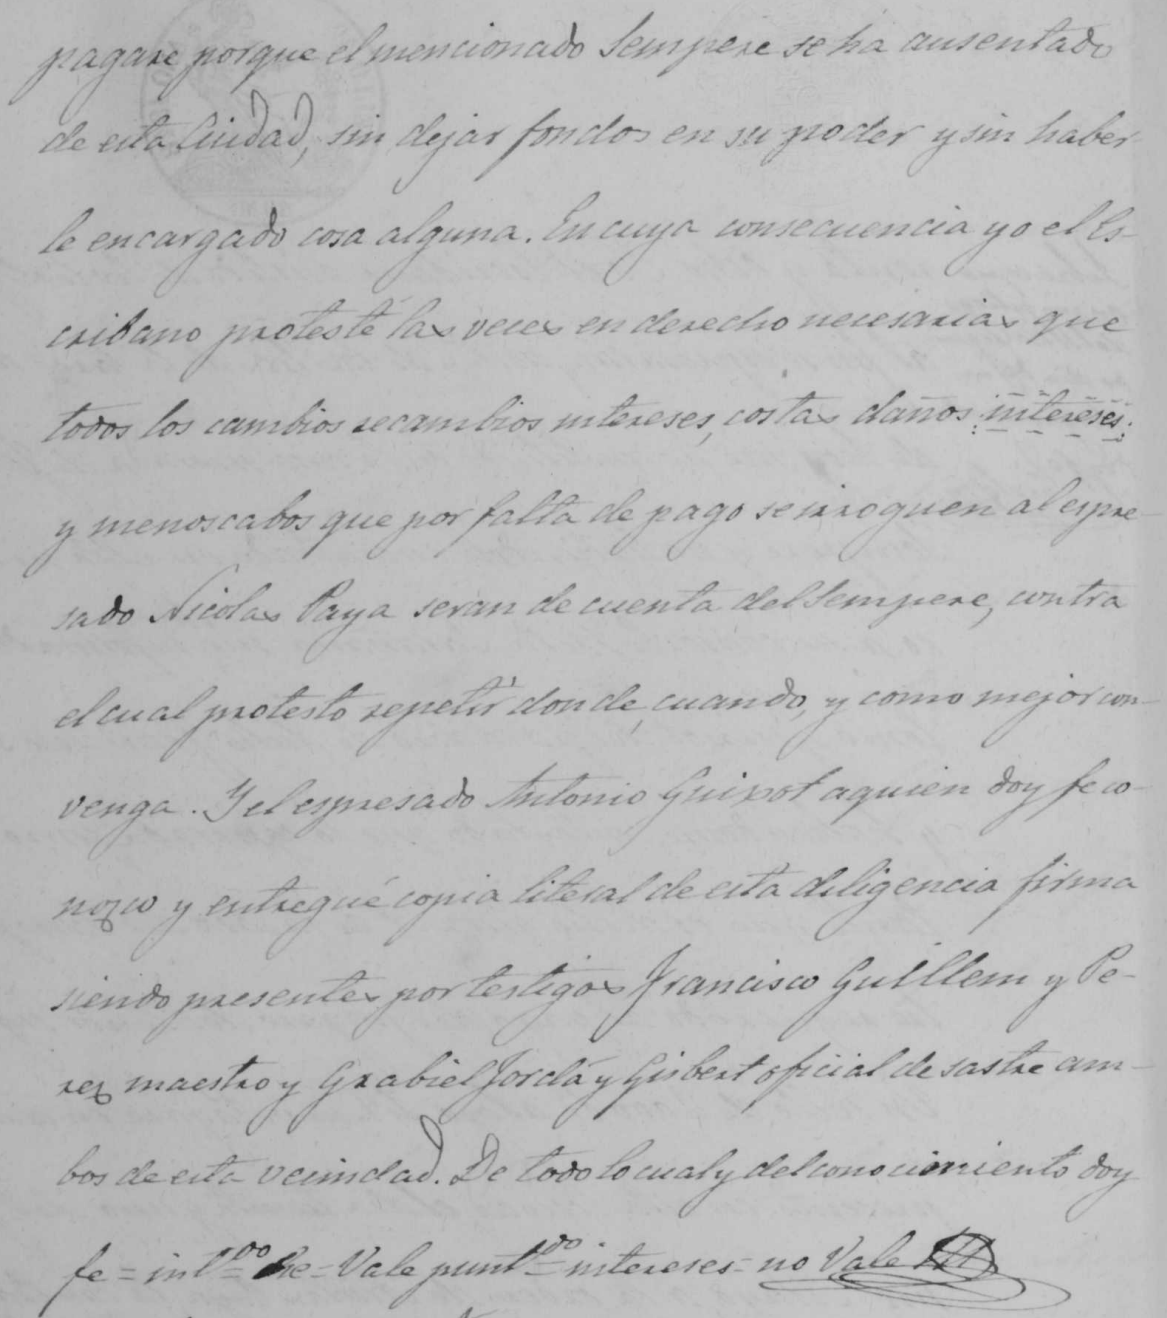 pagare porque el mencionado Sempere se ha ausentado
de esta Ciudad, sin dejar fondos en su poder y sin haber-
le encargado cosa alguna. En cuya consecuencia yo el Es-
cribano protesté las veces en derecho necesarias que
todos los cambios recambios intereses, costas daños intereses
y menoscabos que por falta de pago se irroguen al espre-
sado Nicolas Paya seran de cuenta del Sempere, contra
el cual protesto repetir donde, cuando, y como mejor con-
venga. Y el espresado Antonio Guixot a quien doy fe co-
nozco y entregué copia literal de esta diligencia firma
siendo presentes por testigos Francisco Guillem y Pe-
rez maestro y Grabiel Jordá y Gisbert oficial de sastre am-
bos de esta vecindad. De todo lo cual y del conocimiento doy
fe = intdo = = Vale puntdo = intereses = no Vale